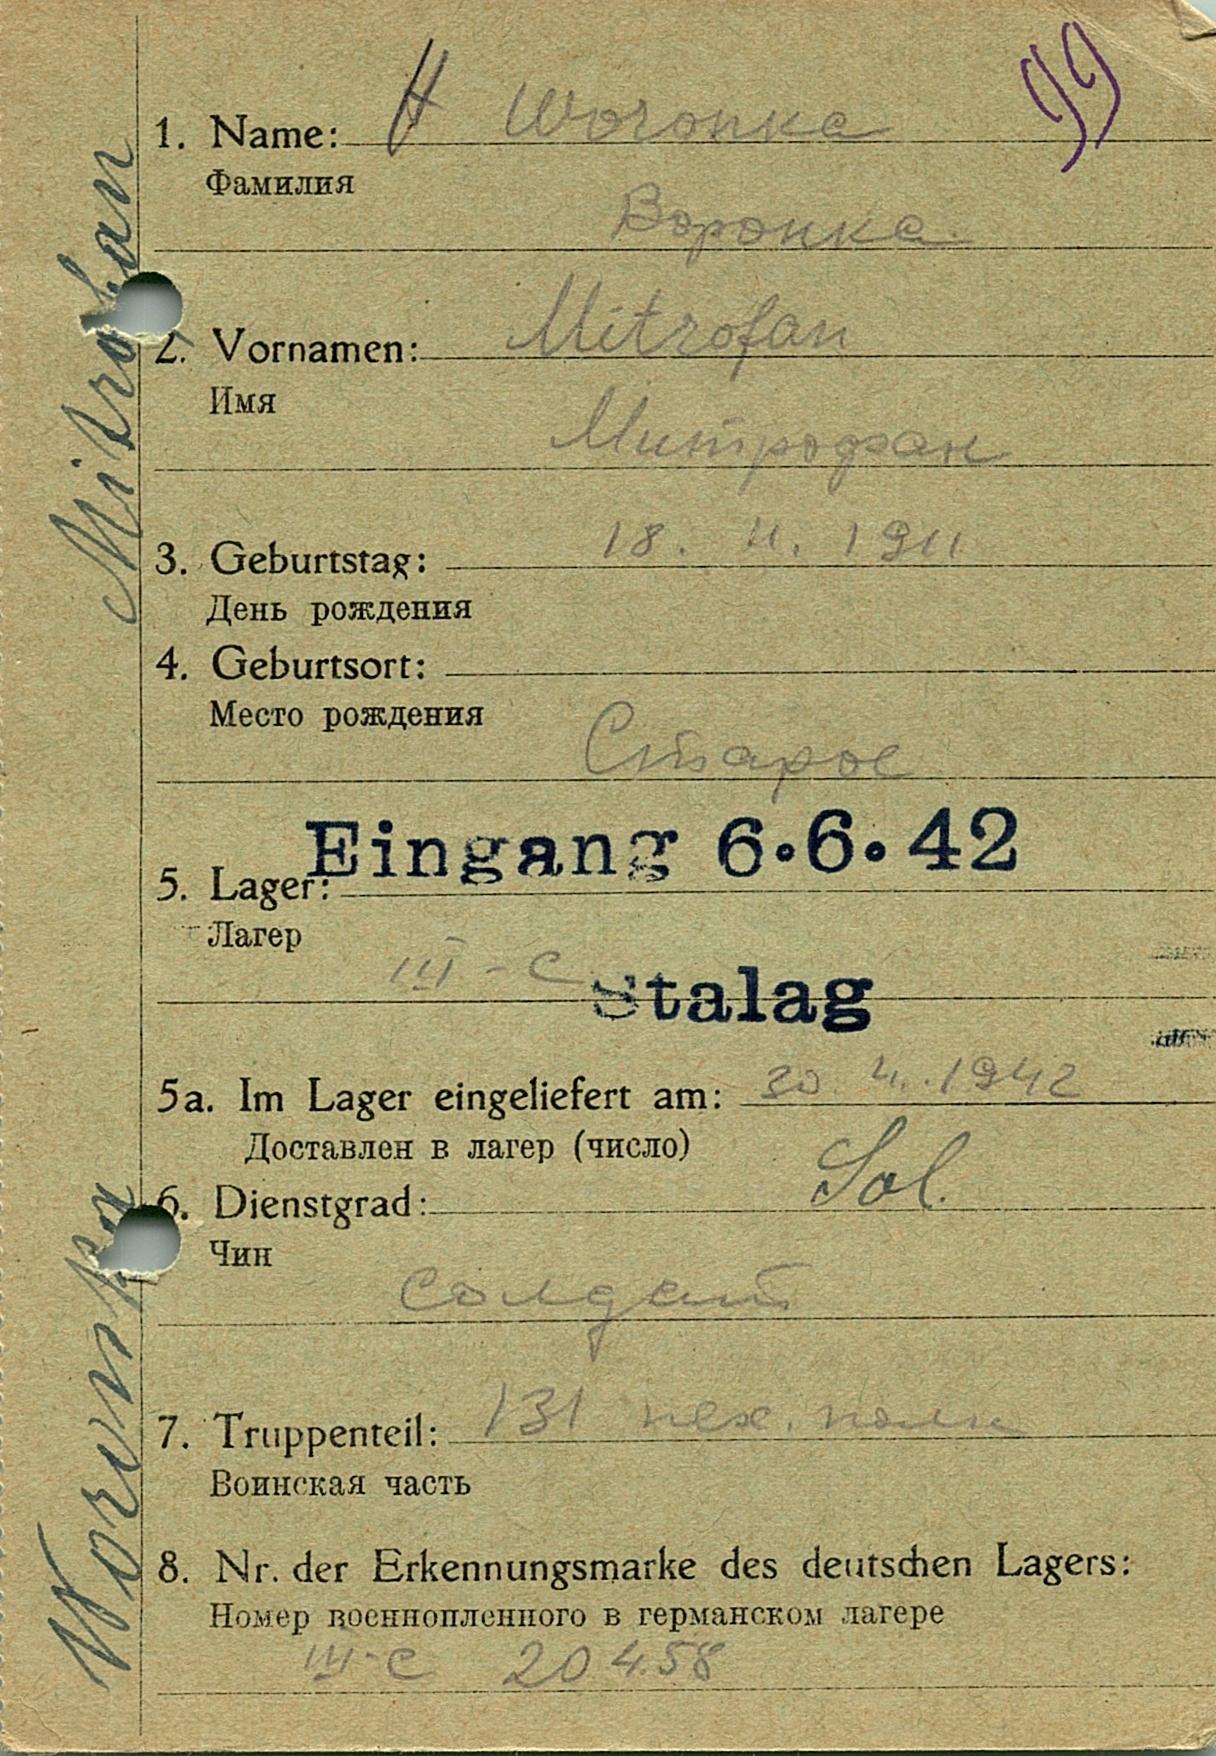 99
1. Name: H Woronka
Фамилия
Воронка
2. Vornamen: Mitrofan
Имя
Митрофан
3. Geburtstag: 18. 4. 1911
День рождения
4. Geburtsort:
Место рождения
Старое
Eingang 6.6.42
5. Lager:
Лагер
III-C Stalag
5a. Im Lager eingeliefert am: 30 4. 1942
Доставлен в лагер (число)
6. Dienstgrad: Sol.
Чин
солдат
7. Truppenteil: 131 пех. полк
Воинская часть
8. Nr. der Erkennungsmarke des deutschen Lagers:
Номер военнопленного в германском лагере
III-C 20458
Woronka Mitrofan